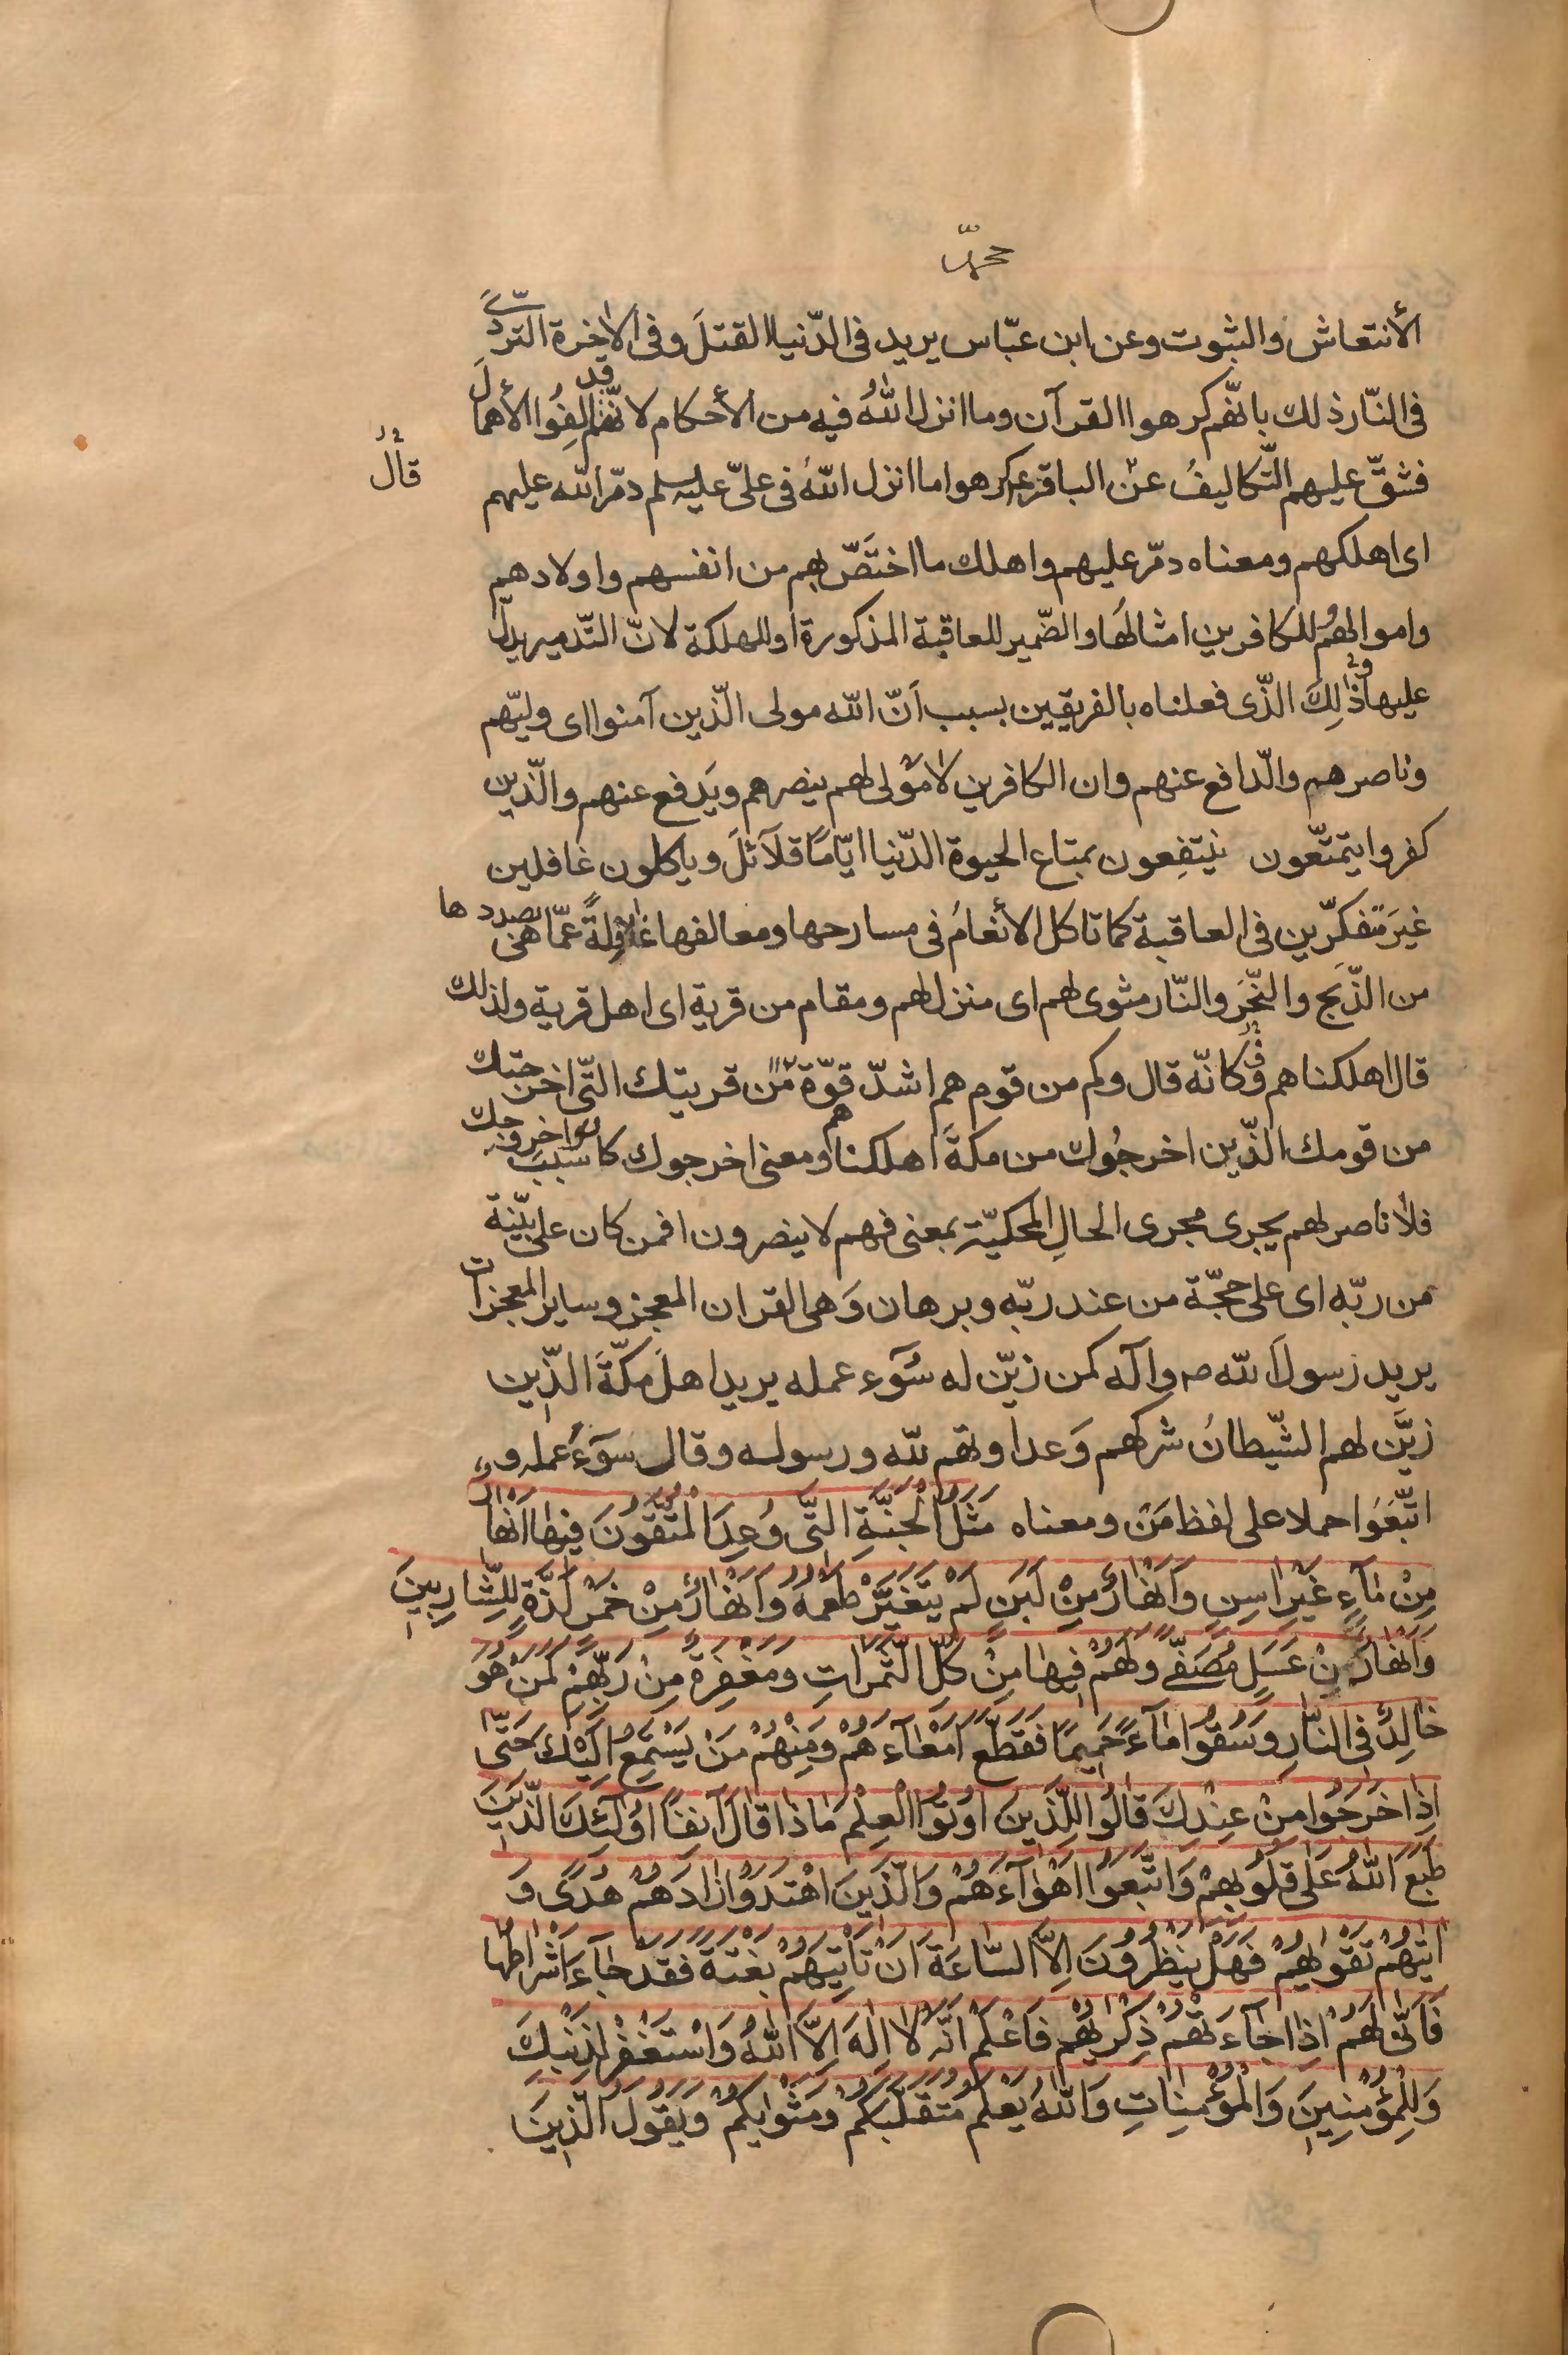 محمّد
الأنتعاش والثبوت وعن ابن عبّاس يريد فى الدّنيا القتلَ وفى الاخرة التردّى
فى النّار ذلك بانّهم كرهوا القرآن وما انزل اللهُ فيه من الأحكام لانّهم قد الفِوُا الأهمالَ
فشقّ عليهم التّكاليفُ عن الباقرع كرهوا ما انزل اللهُ فى علىّ عليه سلم دمّر الله عليهم
قال
اى اهلكهم ومعناه دمّر عليهم واهلك ما اختَصّ بهم من انفسهم واولادهم
واموالهُم للكافرين امثالهَا والضّمير للعاقبة المذكورة او للهلكة لانّ التّدمير يدلّ
عليها وَ ذٰلِكَ الذّى فعلناه بالفريقين بسبب اَنّ الله مولى الّذين آمنوا اى وليّهم
وناصرهم والّدافع عنهم وان الكافرين لا مَوْلى لهم ينصرهم ويَدفع عنهم والّذين
كفروا يتمتّعون ينتفِعون بمتاع الحيوة الدّنيا ايّامًا قلآئلَ وياكلون غافلين
غيَر متفكرّين فى العاقبة كما تاكل الأنعامُ فى مسارحها ومعالفها غافِلةً عمّا هى بصددها
من الذّبَح والنّحَر والنّار مثوى لهم اى منزل لهم ومقام من قرية اى اهل قرية ولذلك
قال اهلكناهم فكانّه قال وكم من قوم هم اشدّ قوّة من قريتك التّى اخرجتك
من قومك الذّين اخرجُوك من مكةَ اهلكناهم ومعنى اخرجوك كانوا سببَ خروجك
فلا ناصر لهم يجرى مجرى الحالِ المحكيّة بمعنى فهم لا ينصرون افمن كان على بيّنة
من ربّه اى على حجّة من عند ربّه وبرهان وَهى القران المعجز وساير المعجزات
يريد رسولَ الله ص وآله كمن زيّن له سُوَء عمله يريد اهلَ مكّةَ الذّين
زيَّن لهم الشّيطانُ شركهم وَعداوتهم لله ورسوله وقال سوَءُ عمله و
اتّبَعُوا حملا على لفظ مَنْ ومعناه مَثَلُ الْجَنَّةِ التَّى وُعِدَ الْمُتَّقُونَ فيهٰا اَنْهٰارٌ
مِنْ مٰآءٍ غَيْرِ اٰسِنٍ وَاَنْهٰارٌ مِنْ لَبَنٍ لَمْ يَتَغَيَّرْ طَعْمُهُ وَاَنْهٰارٌ مِنْ خَمْرٍ لَذَّةٍ لِلشّٰارِبينَ
وَاَنْهٰارٌ مِنْ عَسَلٍ مُصَفّىً وَلَهُمْ فيهٰا مِنْ كُلِّ الثَّمَرٰاتِ وَمَغْفِرَةٌ مِنْ رَبِّهِمْ كَمَنْ هُوَ
خٰالِدٌ فِى النّٰارِ وَسُقُوا مٰآءً حَميمًا فَقَطَّعَ اَمْعٰآءَهُمْ وَمِنْهُمْ مَنْ يَسْتَمِعُ اِلَيْكَ حَتّٰى
اِذٰا خَرَجُوا مِنْ عِنْدِكَ قٰالُوا لِلَّذينَ اُوتُوا الْعِلْمَ مٰاذٰا قٰالَ اٰنِفًا اُولٰئِكَ الَّذينَ
طَبَعَ اللهُ عَلٰى قُلُوبِهِمْ وَاتَّبَعُوا اَهْوٰآءَهُمْ وَالَّذينَ اهْتَدَوْا زٰادَهُمْ هُدًى وَ
اٰتٰيهُمْ تَقْوٰيهُمْ فَهَلْ يَنْظُرُونَ اِلاَّ السّٰاعَةَ اَنْ تَاْتِيَهُمْ بَغْتَةً فَقَدْ جٰآءَ اَشْرٰاطُهٰا
فَاَنّٰى لَهُمْ اِذٰا جٰآءَتْهُمْ ذِكْرٰيهُمْ فَاعْلَمْ اَنَّهُ لاٰ اِلٰهَ اِلاَّ اللهُ وَاسْتَغْفِرْ لِذَنْبِكَ
وَلِلْمُؤْمِنينَ وَالْمُؤْمِنٰاتِ وَاللهُ يَعْلَمُ مُتَقَلَّبَكُمْ وَمَثْوٰيكُمْ وَيَقُولُ الَّذينَ